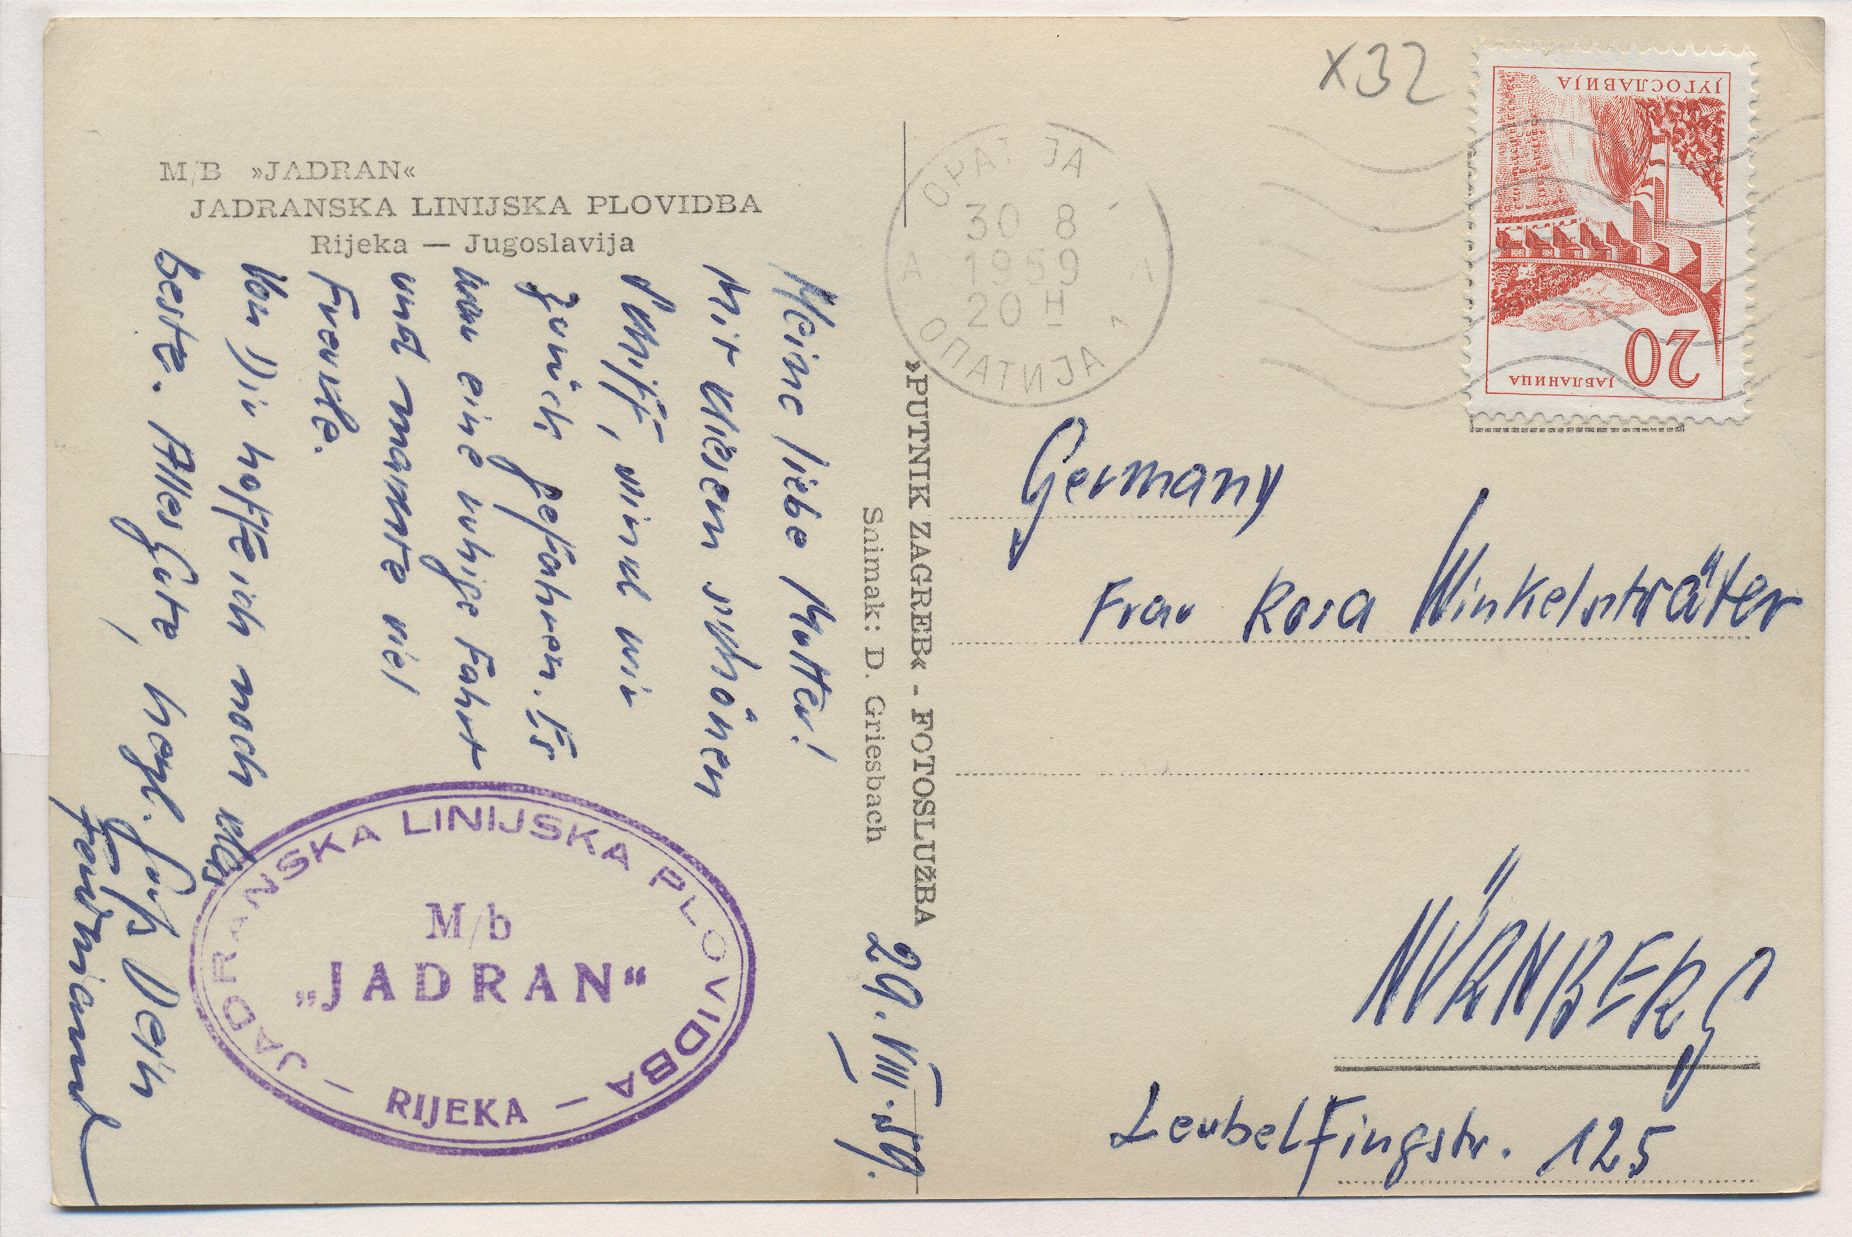 M/B »JADRAN«
JADRANSKA LINIJSKA PLOVIDBA
Rijeka — Jugoslavija
29. VIII. 59.
Meine liebe Mutter!
Mit diesem schönen
Schiff, sind wir
zurück gefahren. Es
war eine ruhige Fahrt
und machte viel
Freude.
Von Dir hoffe ich noch das
Beste. Alles Gute, herzl. Gruß Dein
Ferdinand
JADRANSKA LINIJSKA PLOVIDBA
M/b
„JADRAN“
— RIJEKA —
»PUTNIK ZAGREB« - FOTOSLUŽBA
Snimak: D. Griesbach
X32
OPATIJA
30 8
1959
20 H
ОПАТИЈА
ЈУГОСЛАВИЈА
20
ЈАБЛАНИЦА
Germany
Frau Rosa Winkelsträter
NÜRNBERG
Leubelfingstr. 125